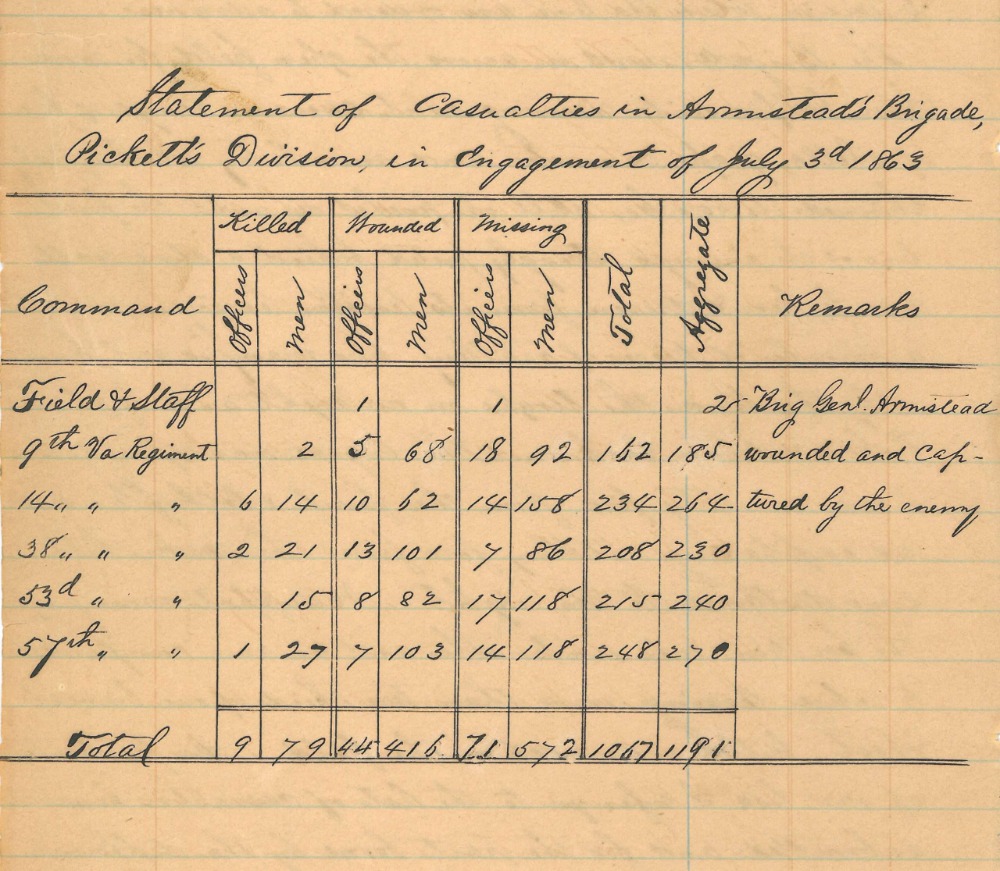 Statement of Casualties in Armistead's Brigade,
Pickett's Division, in Engagement of July 3d 1863
Killed Wounded Missing
Command Officers Men Officers Men Officers Men Total Aggregate Remarks
Field & Staff 1 1 2 Brig Genl. Armistead
9th Va Regiment 2 5 68 18 92 162 185 wounded and Cap-
14 " " " 6 14 10 62 14 158 234 264 tured by the enemy
38 " " " 2 21 13 101 7 86 208 230
53d " " 15 8 82 17 118 215 240
57th " " 1 27 7 103 14 118 248 270
Total 9 79 44 416 71 572 1067 1191